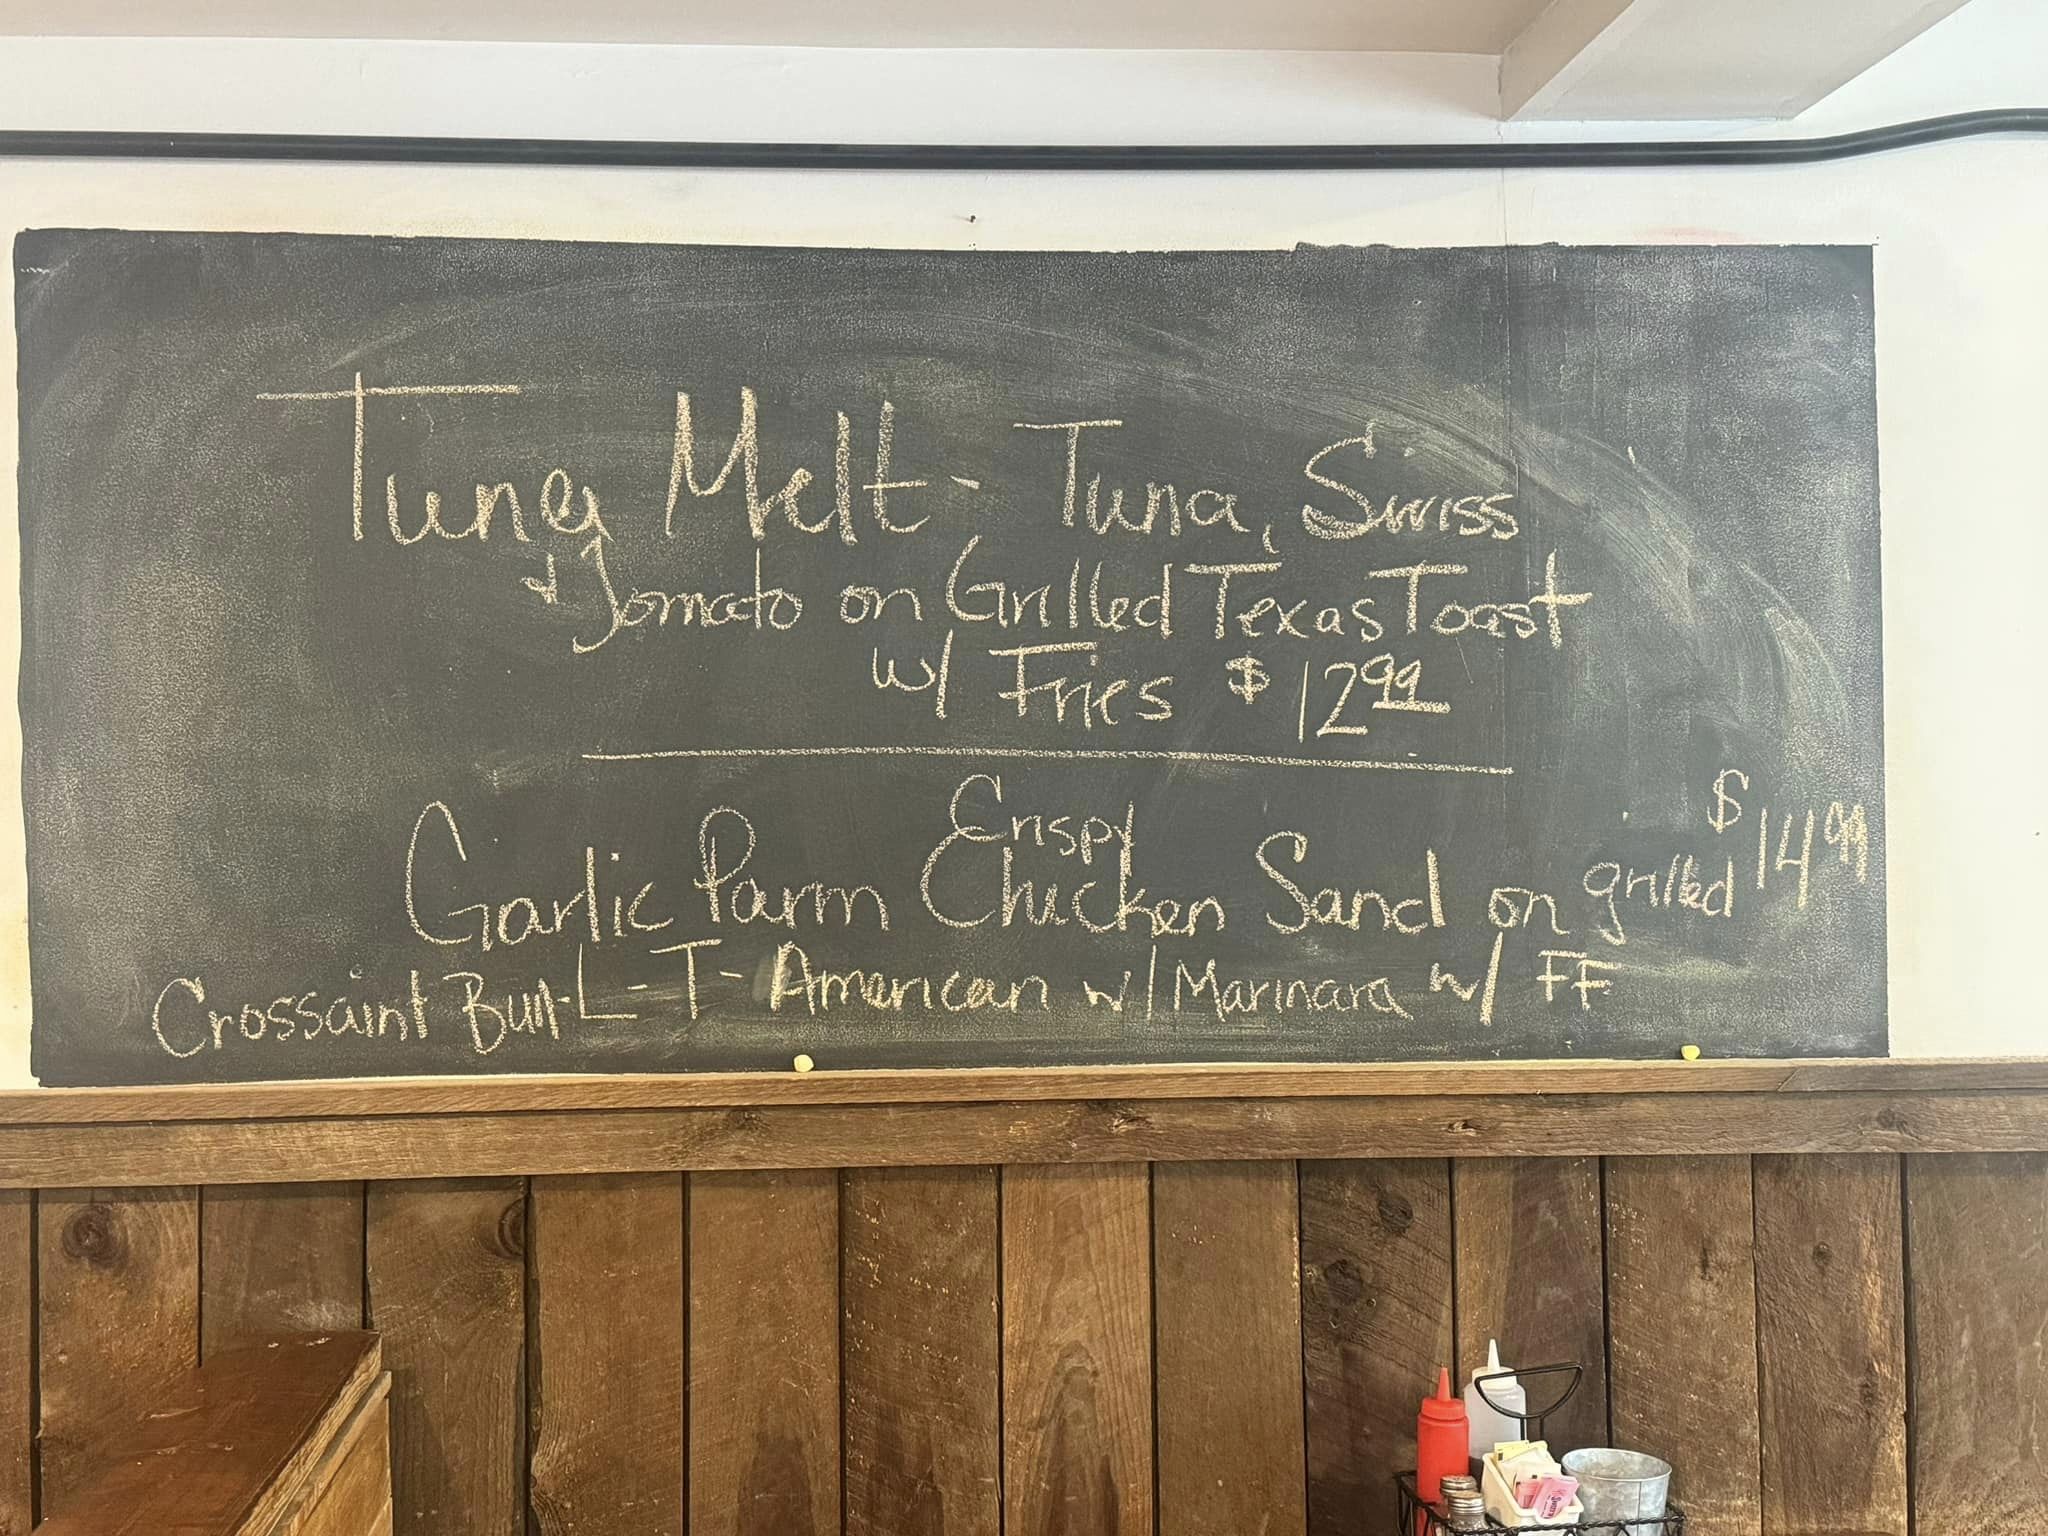 Tuna Melt - Tuna, Swiss
+ Tomato on Grilled Texas Toast
w/ Fries $12.99
Garlic Parm Crispy Chicken Sand on grilled $14.99
Crossaint Bun - L - T - American w/ Marinara w/ FF